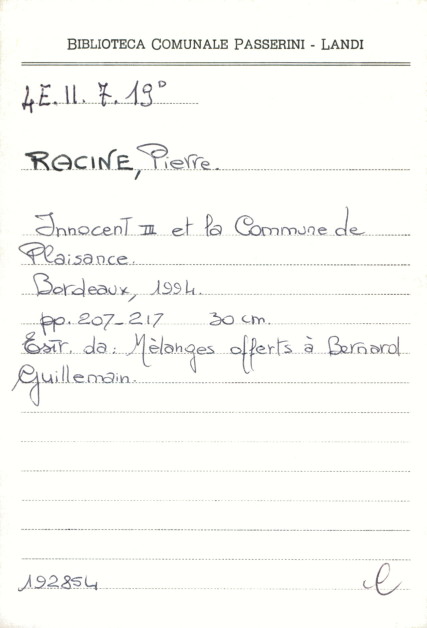 BIBLIOTECA COMUNALE PASSERINI - LANDI
4E. II. 7. 19°
RACINE, Pierre.
Innocent III et la Commune de
Plaisance.
Bordeaux, 1994.
pp. 207-217 30 cm.
Estr. da: Mèlanges offerts à Bernard
Guillemain.
192854